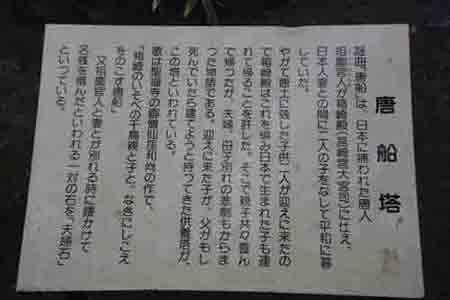 唐船塔
謡曲「唐船」は、日本に捕われた唐人
祖慶官人が箱崎殿(筥崎宮大宮司)に仕え、
日本人妻との間に二人の子をなして平和に暮
していた。
やがて唐土に残した子供二人が迎えに来たの
で箱崎殿はこれを憐み日本で生まれた子も連
れて帰ることを許した。そこで親子共々喜ん
で帰つたが、夫婦、母子別れの悲劇もからま
つた物語である。迎えに来た子が、父がもし
死んでいたら建てようと持ってきた供養塔が、
この塔といわれている。
歌は聖福寺の
和尚の作で、
「箱崎のいそべの千鳥親と子と、なきにしこえ
をのこす唐船」
又祖慶官人と妻とが別れる時に腰かけて
名残を惜んだといわれる一対の石を「夫婦石」
といっている。